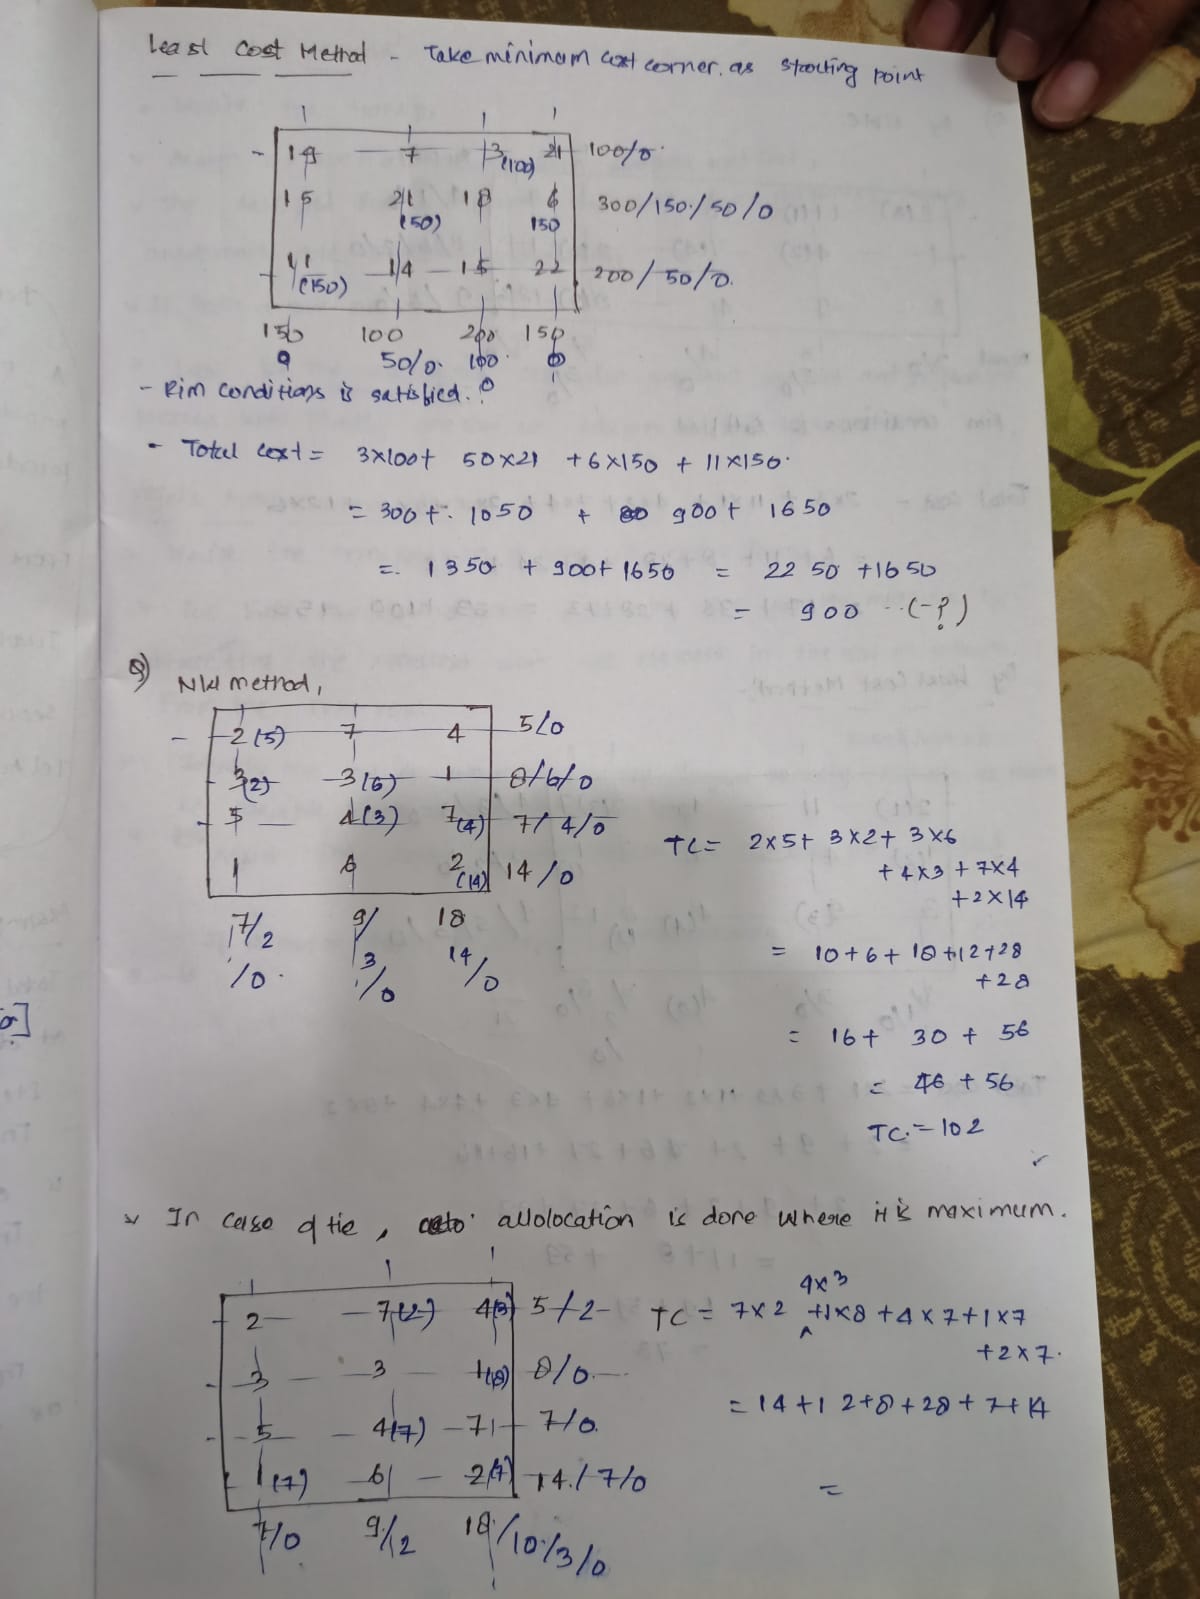 Least Cost Method - Take minimum cost corner. as starting point
19 7 3(100) 21 100/0
15 21(50) 18 6 150 300/150/50/0
11(150) 14 15 22 200/50/0.
150 100 200 150
0 50/0. 100 0
0
- Rim conditions is satisfied.
- Total cost = 3x100+ 50x21 +6x150 + 11x150.
= 300 +. 1050 + 900+ 1650
=. 1350 + 900+ 1650 = 2250 +1650
= 900 ..(-?)
Q) NW method,
2(5) 7 4 5/0
3(2) 3(6) 1 8/6/0
5 4(3) 7(4) 7/4/0
1 6 2(14) 14/0
7/2 9/ 18
/0. 3 14/0
/0
TC= 2x5+ 3x2+ 3x6
+ 4x3 + 7x4
+2x14
= 10+6+ 18+12+28
+28
= 16+ 30 + 56
= 46 + 56
TC.= 102
In case of tie, allolocation is done where it is maximum.
2 7(2) 4(3) 5/2
3 3 1(8) 8/0
5 4(7) 7 7/0.
1(7) 6 2(7) 14./7/0
7/0 9/2 18/10/3/0
4x3
TC = 7x2 +1x8 +4x7+1x7
+2x7.
= 14+12+8+28+7+14
=